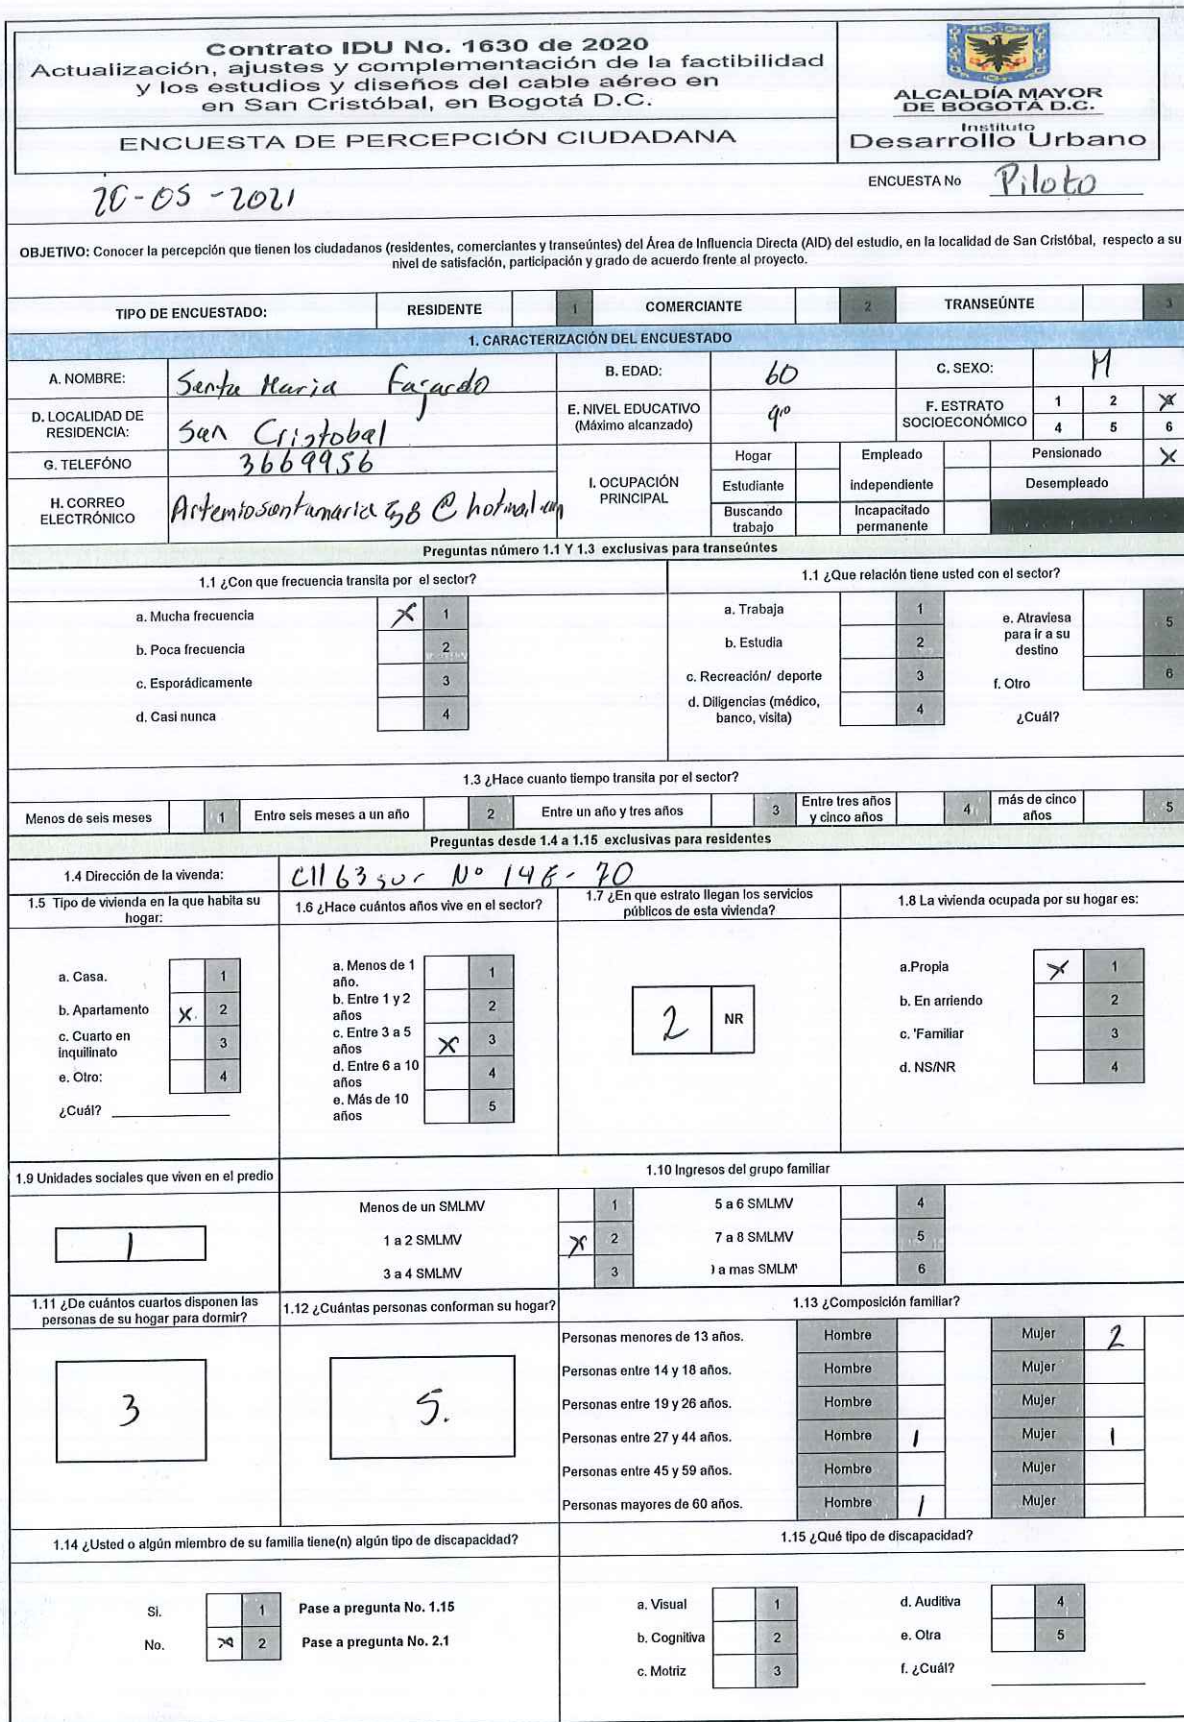 Contrato IDU No. 1630 de 2020
Actualización, ajustes y complementación de la factibilidad
y los estudios y diseños del cable aéreo en
en San Cristóbal, en Bogotá D.C.
ENCUESTA DE PERCEPCIÓN CIUDADANA
ALCALDÍA MAYOR
DE BOGOTÁ D.C.
Instituto
Desarrollo Urbano
-05-2021
ENCUESTA No Piloto
OBJETIVO: Conocer la percepción que tienen los ciudadanos (residentes, comerciantes y transeúntes) del Área de Influencia Directa (AID) del estudio, en la localidad de San Cristóbal, respecto a su
nivel de satisfacción, participación y grado de acuerdo frente al proyecto.
TIPO DE ENCUESTADO: RESIDENTE 1 COMERCIANTE 2 TRANSEÚNTE 3
1. CARACTERIZACIÓN DEL ENCUESTADO
A. NOMBRE: Santa Maria Fajardo B. EDAD: 60 C. SEXO: M
D. LOCALIDAD DE
RESIDENCIA:
San Cristobal
E. NIVEL EDUCATIVO
(Máximo alcanzado)
9º
F. ESTRATO
SOCIOECONÓMICO
1 2 X
4 5 6
G. TELEFÓNO 3669956
H. CORREO
ELECTRÓNICO
I. OCUPACIÓN
PRINCIPAL
Hogar Empleado Pensionado X
Estudiante independiente Desempleado
Buscando
trabajo
Incapacitado
permanente
Preguntas número 1.1 Y 1.3 exclusivas para transeúntes
1.1 ¿Con que frecuencia transita por el sector?
a. Mucha frecuencia X 1
b. Poca frecuencia 2
c. Esporádicamente 3
d. Casi nunca 4
1.1 ¿Que relación tiene usted con el sector?
a. Trabaja 1
b. Estudia 2
c. Recreación/ deporte 3
d. Diligencias (médico,
banco, visita)
4
e. Atraviesa
para ir a su
destino
5
f. Otro 6
¿Cuál?
1.3 ¿Hace cuanto tiempo transita por el sector?
Menos de seis meses 1 Entre seis meses a un año 2 Entre un año y tres años 3 Entre tres años
y cinco años
4 más de cinco
años
5
Preguntas desde 1.4 a 1.15 exclusivas para residentes
1.4 Dirección de la vivenda: Cll 63 sur Nº 14E-70
1.5 Tipo de vivienda en la que habita su
hogar:
a. Casa. 1
b. Apartamento X 2
c. Cuarto en
inquilinato
3
e. Otro: 4
¿Cuál?
1.6 ¿Hace cuántos años vive en el sector?
a. Menos de 1
año.
1
b. Entre 1 y 2
años
2
c. Entre 3 a 5
años
X 3
d. Entre 6 a 10
años
4
e. Más de 10
años
5
1.7 ¿En que estrato llegan los servicios
públicos de esta vivienda?
2 NR
1.8 La vivienda ocupada por su hogar es:
a.Propia X 1
b. En arriendo 2
c. 'Familiar 3
d. NS/NR 4
1.9 Unidades sociales que viven en el predio
1
1.10 Ingresos del grupo familiar
Menos de un SMLMV 1 5 a 6 SMLMV 4
1 a 2 SMLMV X 2 7 a 8 SMLMV 5
3 a 4 SMLMV 3 a mas SMLM 6
1.11 ¿De cuántos cuartos disponen las
personas de su hogar para dormir?
3
1.12 ¿Cuántas personas conforman su hogar?
5.
1.13 ¿Composición familiar?
Personas menores de 13 años. Hombre Mujer 2
Personas entre 14 y 18 años. Hombre Mujer
Personas entre 19 y 26 años. Hombre Mujer
Personas entre 27 y 44 años. Hombre 1 Mujer 1
Personas entre 45 y 59 años. Hombre Mujer
Personas mayores de 60 años. Hombre 1 Mujer
1.14 ¿Usted o algún miembro de su familia tiene(n) algún tipo de discapacidad?
Si. 1 Pase a pregunta No. 1.15
No. X 2 Pase a pregunta No. 2.1
1.15 ¿Qué tipo de discapacidad?
a. Visual 1 d. Auditiva 4
b. Cognitiva 2 e. Otra 5
c. Motriz 3 f. ¿Cuál?